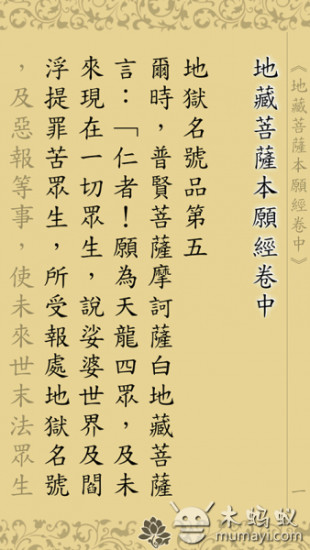 《地藏菩薩本願經卷中》
一
地藏菩薩本願經卷中
地獄名號品第五
爾時，普賢菩薩摩訶薩白地藏菩薩
言：「仁者！願為天龍四眾，及未
來現在一切眾生，說娑婆世界及閻
浮提罪苦眾生，所受報處地獄名號
，及惡報等事，使未來世末法眾生
木蚂蚁
mumayi.com